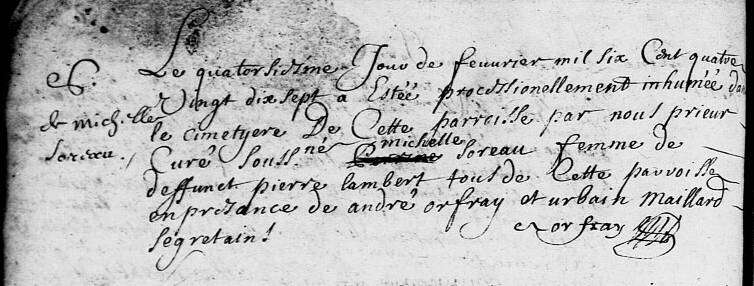 S.
de michelle
soreau.
Le quatorsiesme Jour de feuvrier mil six Cent quatre
Vingt dix sept a Estéé processionellement inhuméé dans
le cimetyere De Cette parroisse par nous prieur
Curé Souss.né michelle soreau femme de
deffunct pierre lambert tous de Cette parroisse
en presance de andré orfray et urbain Maillard
segretain.
orfray